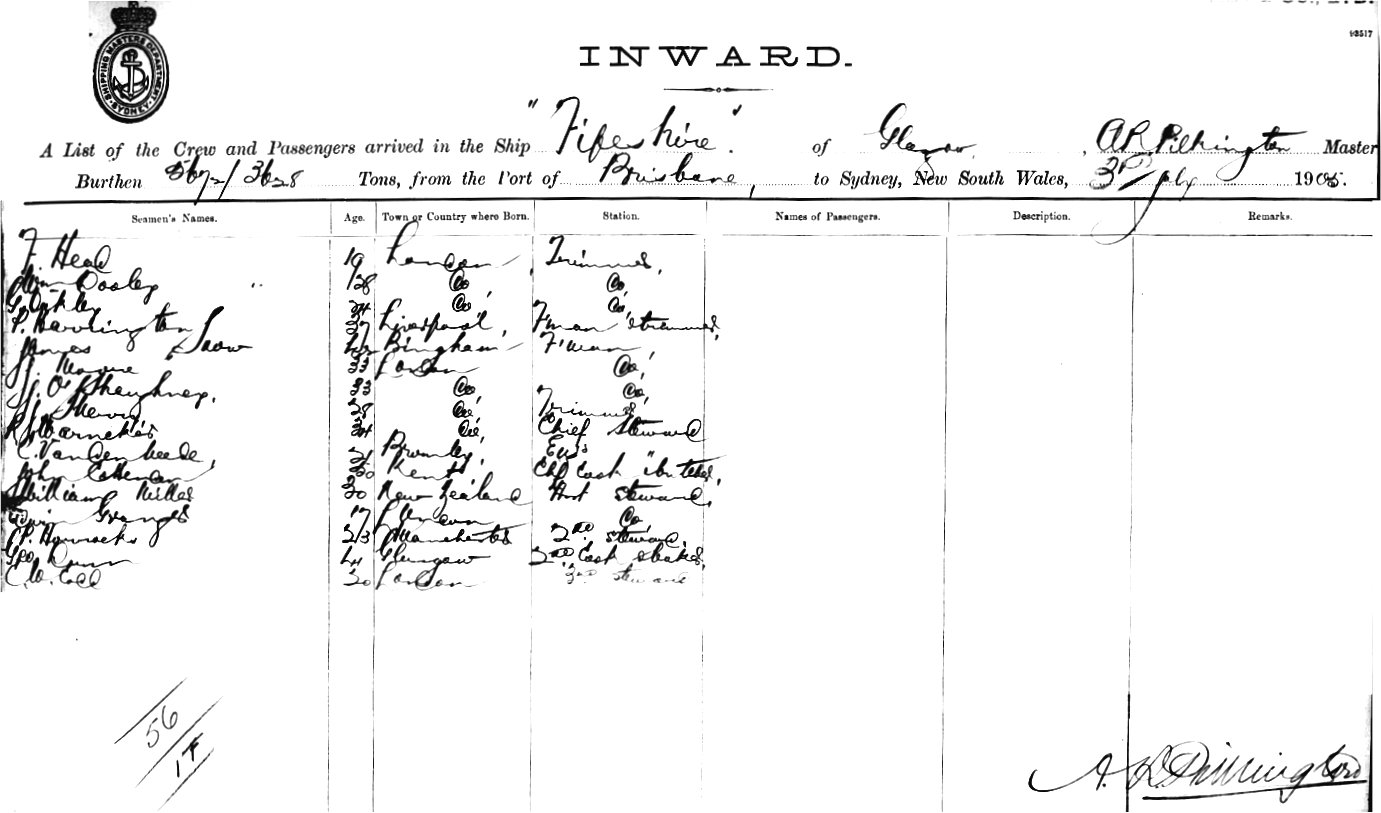 SHIPPING MASTERS DEPARTMENT SYDNEY
93517
INWARD.
A List of the Crew and Passengers arrived in the Ship "Fifeshire". of Glasgow, A R Pilkington Master
Burthen 5672/3628 Tons, from the Port of Brisbane, to Sydney, New South Wales, 3rd July 1905.
Seamen's Names. Age. Town or Country where Born. Station. Names of Passengers. Description. Remarks.
F. Head 19 London, Trimmer,
Dooley 28 Do, Do,
G. 24 Do, Do,
P. Harrington 27 Liverpool, F'man & trimmer,
James Snow 42 Bingham F'man,
J. Moore 33 London Do,
J. O'Shaughnessy, 33 Do, Do,
28 Do, Trimmer,
24 Do, Chief Steward
C. Vandenheede, 21 Bromley,
John 50 Kent Cook
William Miller 30 New Zealand Steward,
Edwin Granger 17 London Do,
P. Horrocks 23 Manchester 2nd steward.
Geo Dunn 44 Glasgow 2nd Cook & baker,
C. W. 30 London 3rd steward
56
A. R. Pilkington